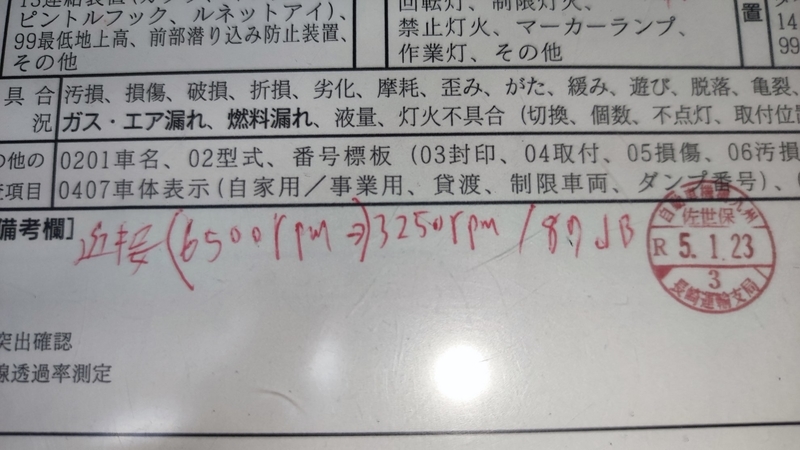 15連結装置
ピントルフック、ルネットアイ)、
99最低地上高、前部潜り込み防止装置、
その他
回転灯、制限灯火、
禁止灯火、マーカーランプ、
作業灯、その他
置
14
99
具合 汚損、損傷、破損、折損、劣化、摩耗、歪み、がた、緩み、遊び、脱落、亀裂、
況 ガス・エア漏れ、燃料漏れ、液量、灯火不具合(切換、個数、不点灯、取付位置
の他の 0201車名、02型式、番号標板(03封印、04取付、05損傷、06汚損
項目 0407車体表示(自家用/事業用、貸渡、制限車両、ダンプ番号)、
備考欄]
近接(6500rpm⇒)3250rpm/87dB
佐世保
R 5.1.23
3
長崎運輸支局
突出確認
線透過率測定